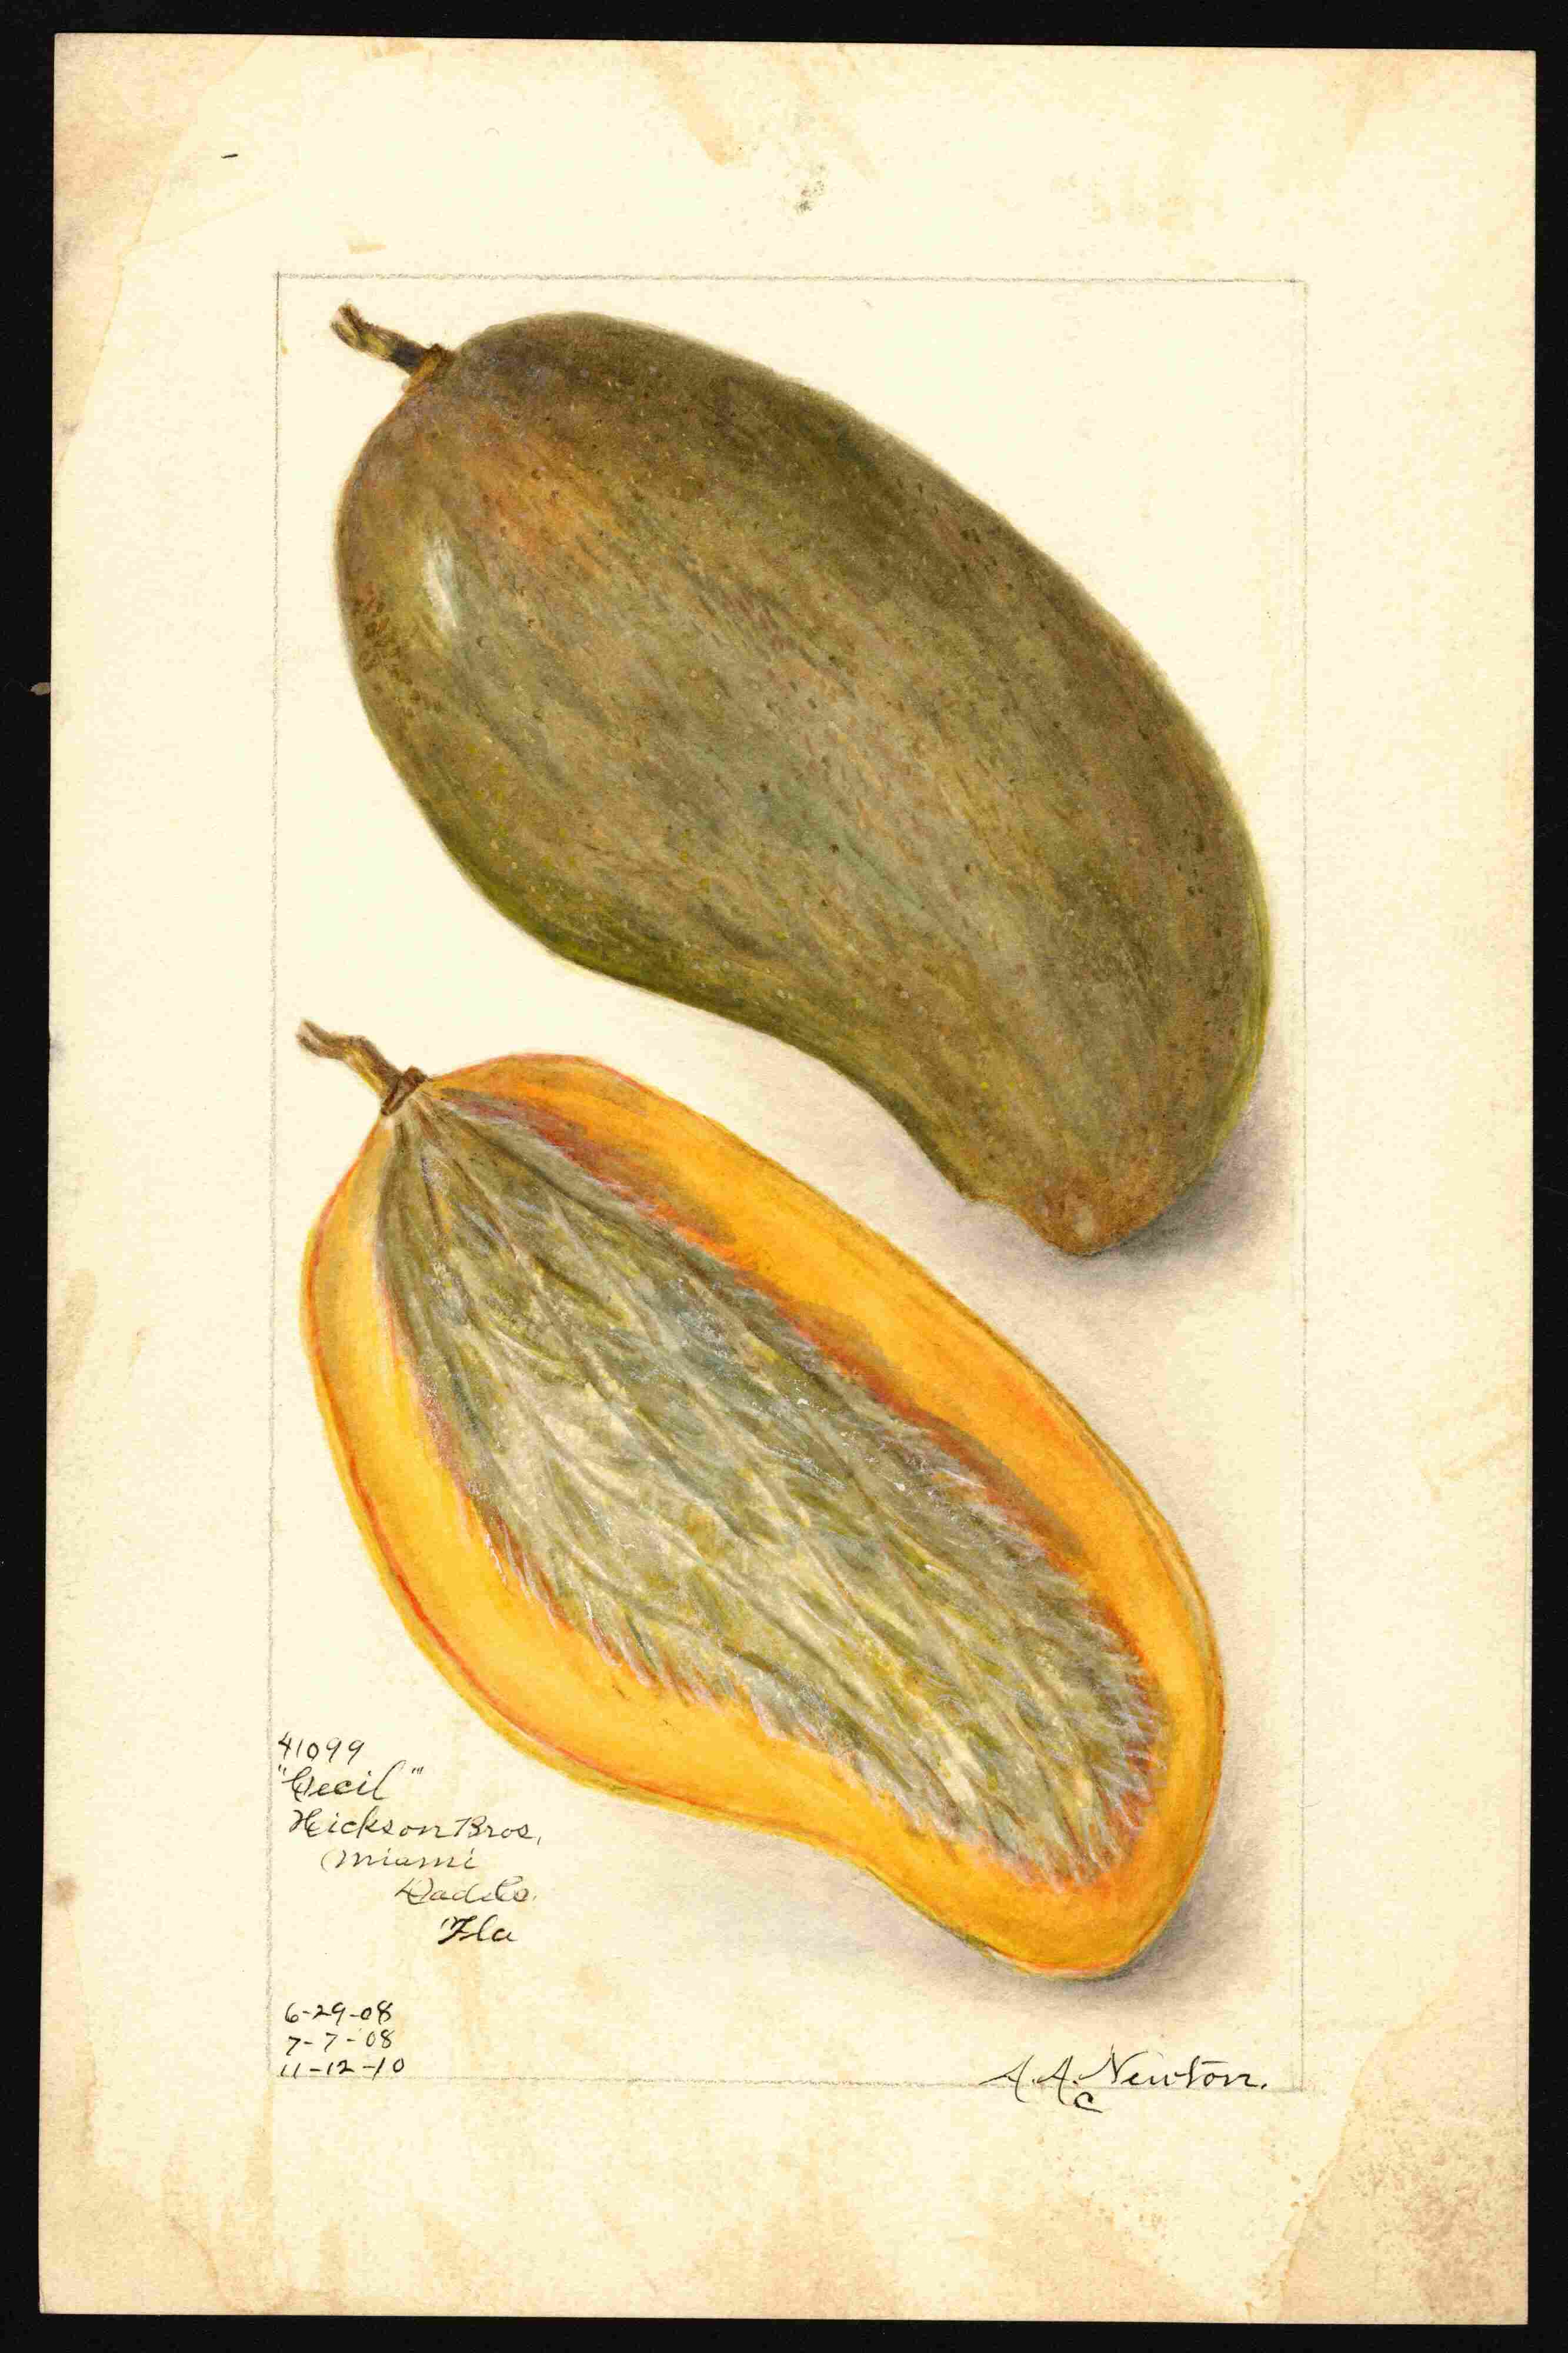 41099
"Cecil"
Hickson Bros.
Miami
Dade Co.
Fla
6-29-08
7-7-08
11-12-10
A.A. Newton.
c